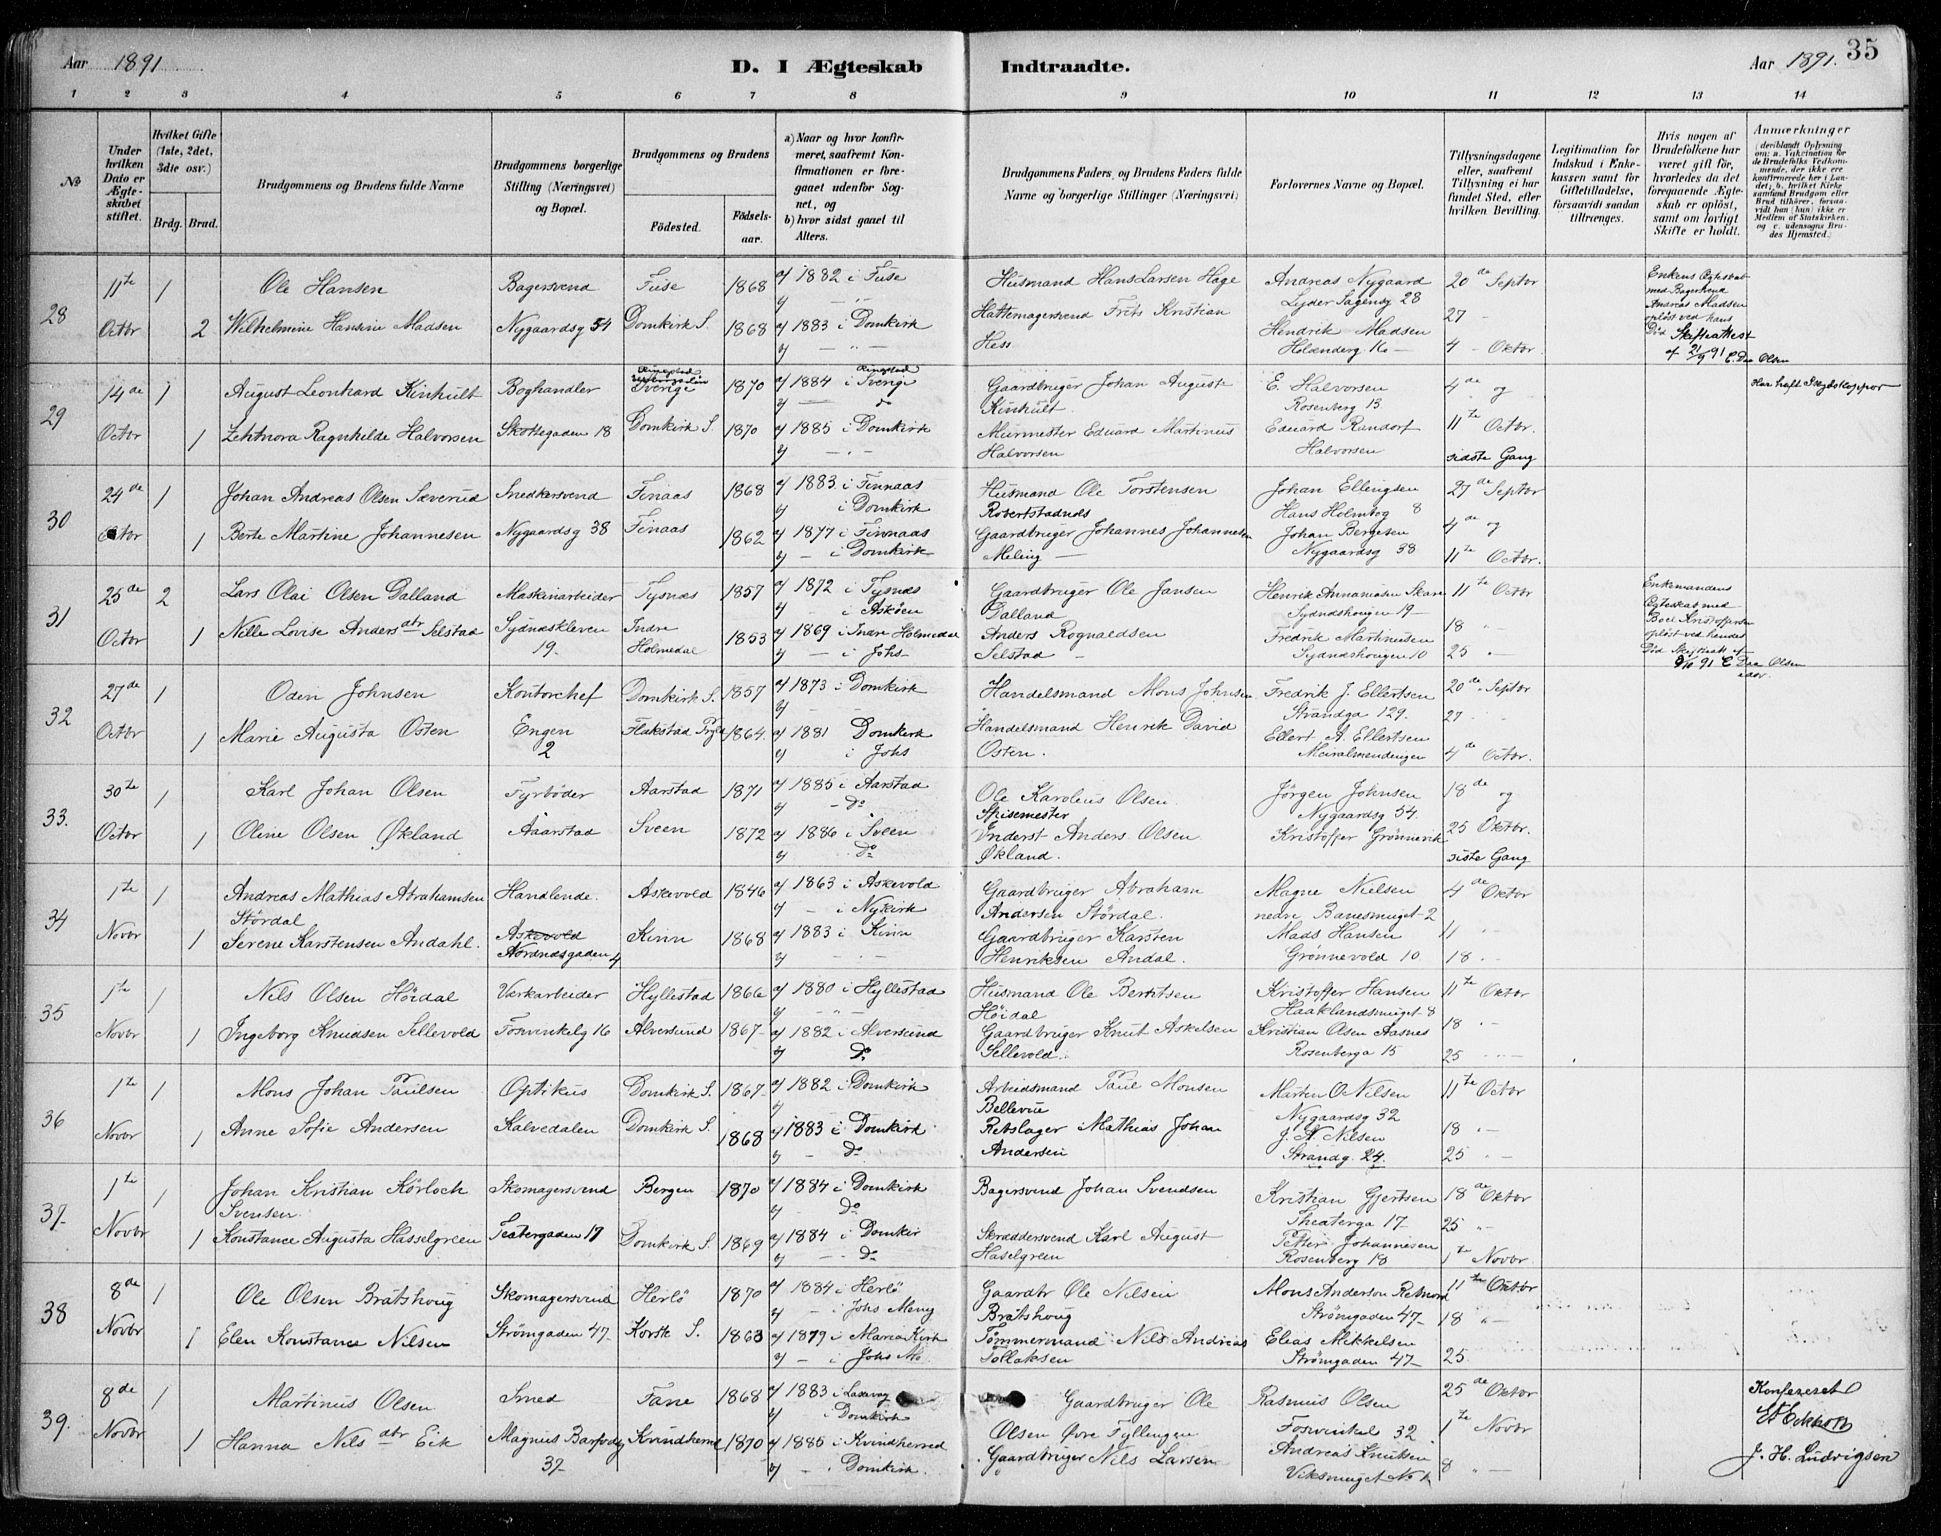 Aar 1891
D. I Ægteskab Indtraadte.
Aar 1891.
35
1 2 3 4 5 6 7 8 9 10 11 12 13 14
No
Under hvilken Dato er Ægteskabet stiftet.
Hvilket Gifte (1ste, 2det, 3die osv.)
Brdg. Brud.
Brudgommens og Brudens fulde Navne
Brudgommens borgerlige Stilling (Næringsvei) og Bopæl.
Brudgommens og Brudens
Fødested.
Fødselsaar.
a) Naar og hvor konfirmeret, saafremt Konfirmationen er foregaaet udenfor Sognet, og
b) hvor sidst gaaet til Alters.
Brudgommens Faders og Brudens Faders fulde Navne og borgerlige Stillinger (Næringsvei)
Forlovernes Navne og Bopæl.
Tillysningsdagene eller, saafremt Tillysning ei har fundet Sted, efter hvilken Bevilling.
Legitimation for Indskud i Enkekassen samt for Giftetilladelse, forsaavidt saadan tiltrænges.
Hvis nogen af Brudefolkene har været gift før, hvorledes da det foregaaende Ægteskab er opløst, samt om lovligt Skifte er holdt.
Anmærkninger (deriblandt Oplysning om: a. Vakcination for de Brudefolks Vedkommende, der ikke ere konfirmerede her i Landet; b. hvilket Kirkesamfund Brudgom eller Brud tilhører, forsaavidt han (hun) ikke er Medlem af Statskirken, og c. udensogns Brudes Hjemsted.)
28 11te Octbr 1 2
Ole Hansen Bagersvend Fuse 1868 a) 1882 i Fuse
Wilhelmine Hansine Madsen Nygaardsg 54 Domkirk S. 1868 a) 1883 i Domkirk
Husmand Hans Larsen Hage Andreas Nygaard 20de Septbr
Lyder Sagensg 28
Hattemagersvend Frits Kristian Hess Hendrik Madsen 27 -
Holænderg 16 - 4 - Oktbr.
Enkens Ægteskab med Bagersvend Andreas Madsen opløst ved hans Død Skifteattest af 21/9 91 E. Daa Olsen
29 14de Octbr 1 1
August Leonhard Kinhult Boghandler Sverige 1870 a) 1884 i Sverige
Zehtnora Ragnhilde Halvorsen Skottegaden 18 Domkirk S. 1870 a) 1885 i Domkirk
Gaardbruger Johan August Kinhult. E. Halvorsen Rosenberg 13 4de og
Murmester Eduard Martinus Halvorsen Eduard Randorf Halvorsen 11te Octbr.
sidste Gang
Har haft
30 24de Octbr 1 1
Johan Andreas Olsen Sæverud Snedkersvend Finaas 1868 a) 1883 i Finnaas
b) i Domkirk
Berte Martine Johannesen Nygaardsg 38 Finaas 1862 a) 1877 i Finnaas
b) - i Domkirk
Husmand Ole Torstensen Robertstadnes Johan Ellingsen Hans Holmbog 8 27de Septbr
Gaardbruger Johannes Johannesen Meling - Johan Bergesen Nygaardsg 38 4de og
11te Octbr.
31 25de Octbr 2 1
Lars Olai Olsen Dalland Maskinarbeider Tysnæs 1857 a) 1872 i Tysnæs
b) - i Askøen
Nille Lovise Andersdtr Selstad Sydnæskleven 19. Indre Holmedal 1853 a) 1869 i Indre Holmedal
b) - i Johs
Gaardbruger Ole Jansen Dalland Henrik Annaniasen Skare Sydnæshougen 19 - 11te Octbr
Anders Rognaldsen Selstad - Fredrik Martinusen Sydnæshougen 10 18 "
25 "
Enkemandens Ægteskab med Boel Kristoffersen opløst ved hendes Død E Daa Olsen
32 27de Octbr 1 1
Oden Johnsen Kontorchef Domkirk S. 1857 a) 1873 i Domkirk
Marie Augusta Osten Engen 2 Flakstad 1864 a) 1881 Domkirk
b) i Johs
Handelsmand Mons Johnsen Fredrik J. Ellertsen Strandga 129. 20de Septbr
Handelsmand Henrik David Osten. Ellert A. Ellertsen 27 "
4de Octbr.
33. 30te Octbr 1 1
Karl Johan Olsen Fyrbøder Aarstad 1871 a) 1885 i Aarstad
b) - Do
Oline Olsen Økland Aarstad Sveen 1872 a) 1886 i Sveen
b) Do
Ole Karolius Olsen. Jørgen Johnsen Nygaardsg 54. 18de og
Anders Olsen Økland. Kristoffer Grønnevik 25 Oktbr.
siste Gang
34 1te Novbr 1 1
Andreas Mathias Abrahamsen Stördal Handlende. Askevold 1846 a) 1863 i Askevold
b) - i Nykirk
Serene Karstensen Andahl. Askevold Nordnæsgaden 4 Kinn 1868 a) 1883 i Kinn
Gaardbruger Abraham Andersen Stördal. Magne Nielsen nedre Banesmuget 2 4de Oktbr
Gaardbruger Karsten Henriksen Andal. Mads Hansen Grønnevold 10 11 "
18 "
35 1te Novbr 1 1
Nils Olsen Höidal Værkarbeider Hyllestad 1866 a) 1880 i Hyllestad
Ingeborg Knudsen Sellevold Fosvinkelg 16 Alversund 1867 a) 1882 i Alversund
b) Do
Husmand Ole Berntsen Höidal Kristoffer Hansen Haaklandsmuget 8 11te Oktbr
Gaardbruger Knut Askelsen Sellevold. Kristian Olsen Aasnes Rosenberga 15 18 "
25 "
36 1te Novbr 1 1
Mons Johan Paulsen Optikus Domkirk S. 1867 a) 1882 i Domkirk
Anne Sofie Andersen Kalvedalen Domkirk S. 1868 a) 1883 i Domkirk
b) - Do
Arbeidsmand Paul Monsen Bellevue Martin O Nilsen Nygaardsg 32 11te Octbr
Rebslager Mathias Johan Andersen J. A. Nilsen Strandg. 24. 18 "
25 "
37 1te Novbr 1 1
Johan Kristian Körloch Svensen Skomagersvend Bergen 1870 a) 1884 i Domkirk
b) - Do
Konstance Augusta Hasselgreen Teatergaden 17 Domkirk S. 1869 a) 1884 i Domkir
b) - Do
Bagersvend Johan Svendsen Kristian Gjertsen Theaterga 17 18de Oktbr
Skræddersvend Karl August Haselgreen Petter Johannesen Rosenberg 18 25 "
1te Novbr
38 8de Novbr 1 1
Ole Olsen Bratshoug Skomagersvend Herlö 1870 a) 1884 i Herlö
b) - i Johs Menig
Elen Konstance Nilsen Strömgaden 47 Korsk S. 1863 a) 1879 i Maria Kirk
b) - i Johs Me
Gaardbr Ole Nilsen Bratshoug Mons Anderson Strömgaden 47 11te Oktbr
Tømmermand Nils Andreas Tollaksen Elias Mikkelsen Strömgaden 47 18 "
25
39. 8de Novbr 1 1
Martinus Olsen Smed Fane 1868 a) 1883 i Laksevag
b) i Domkirk
Hanna Nilsdtr Eik Magnus Barfodg 37 Kvindherred 1870 a) 1885 i Kvindherred
b) - i Domkirk.
Gaardbruger Ole Olsen Øvre Fyllingen Rasmus Olsen Fosvinkel 32 25de Oktbr
Gaardbruger Nils Larsen Andreas Knutsen Viksmuget No 1te Novbr
8 "
Konfereret
J. H. Ludvigsen